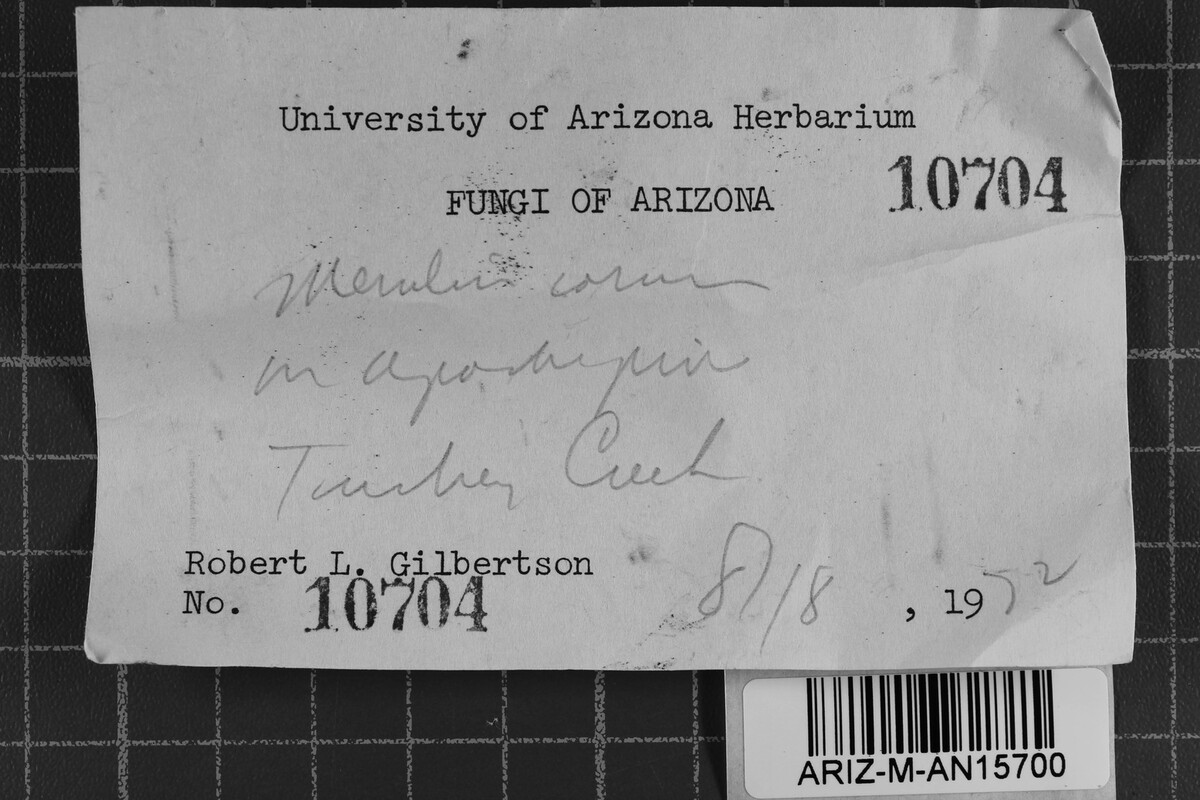 University of Arizona Herbarium
10704
FUNGI OF ARIZONA
Merulius
on
Turkey Creek
Robert L. Gilbertson
No. 10704
8/18, 1972
ARIZ-M-AN15700